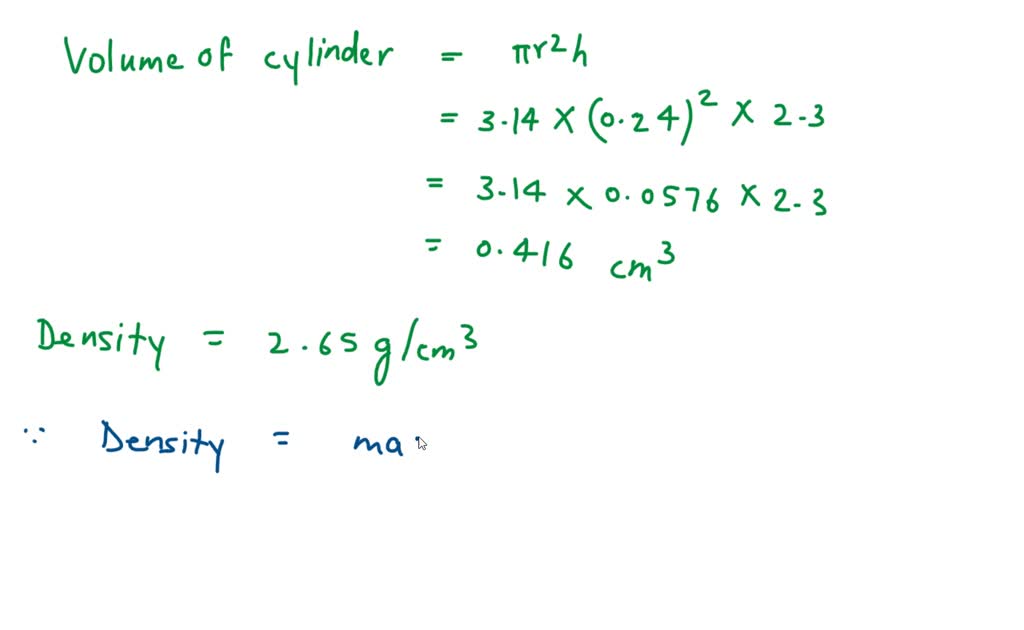 Volume of cylinder = πr²h
= 3.14 × (0.24)² × 2.3
= 3.14 × 0.0576 × 2.3
= 0.416 cm³
Density = 2.65 g/cm³
∵ Density = ma